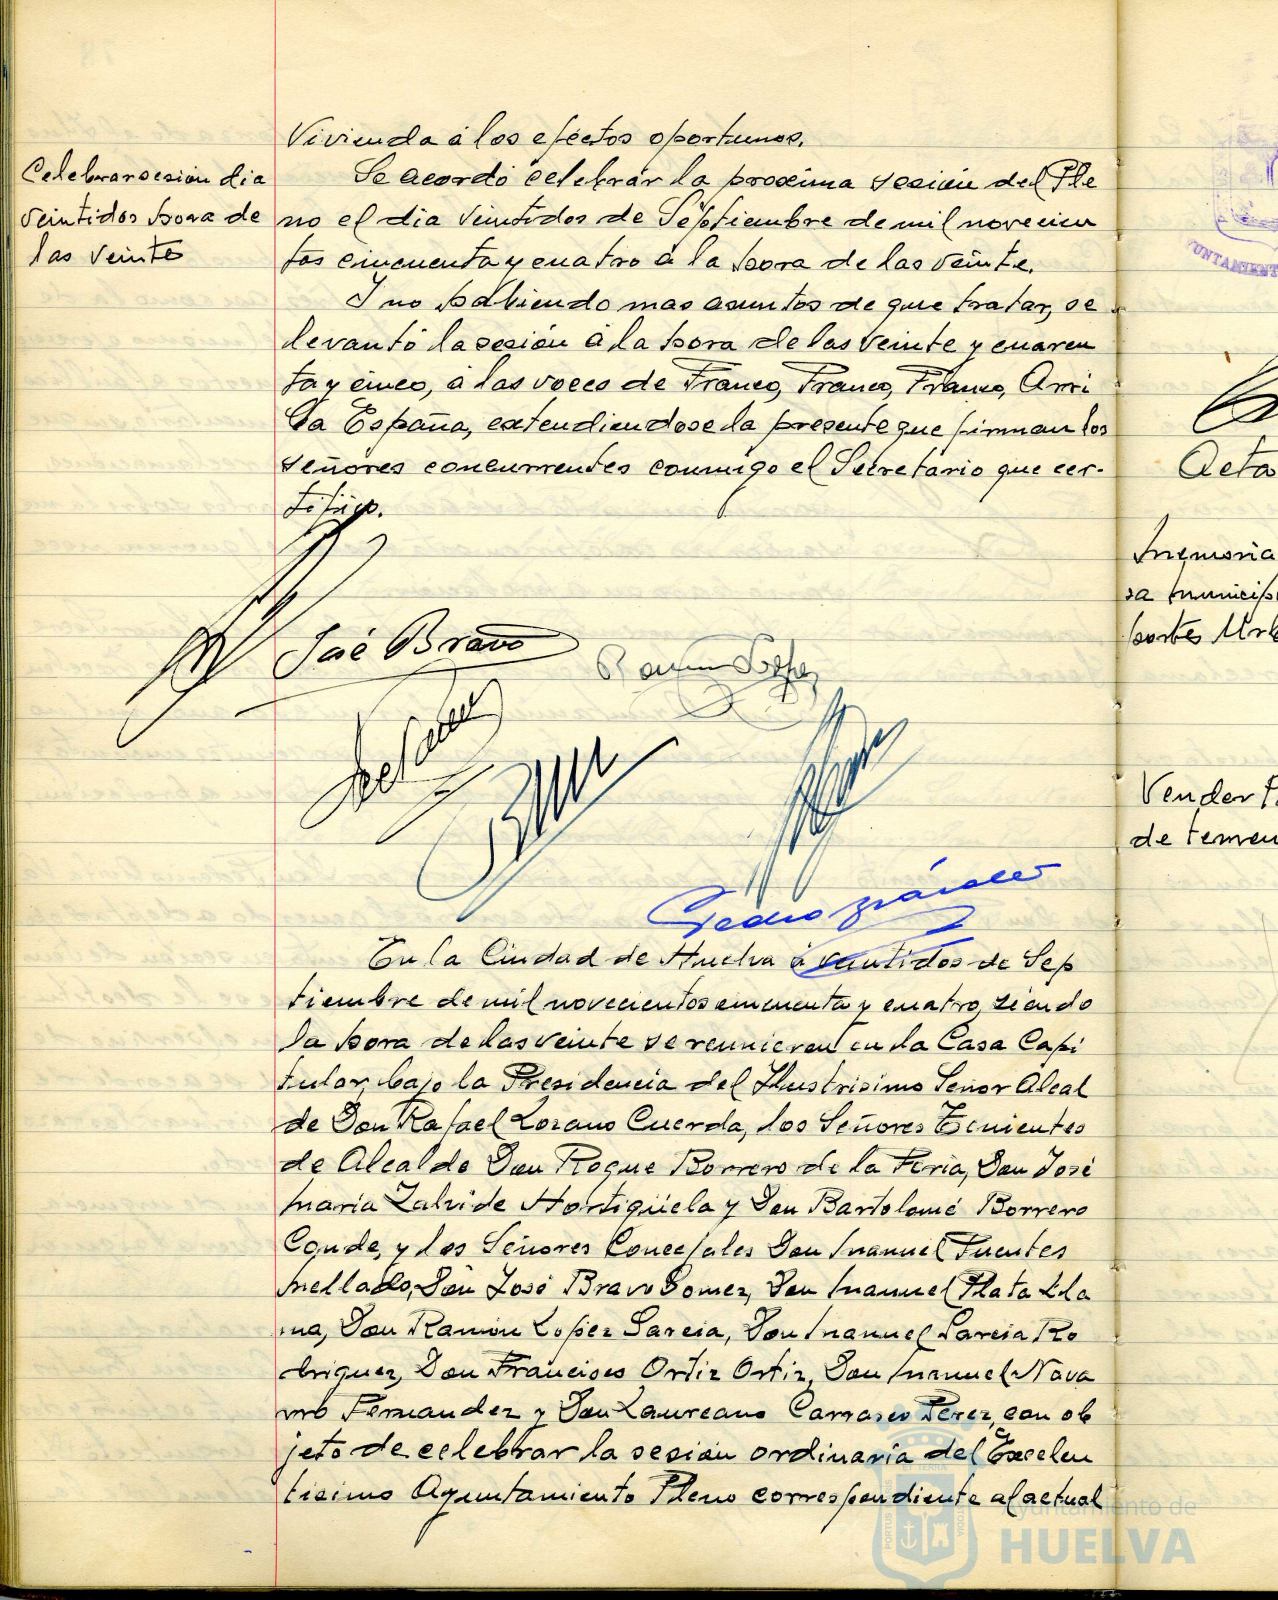 Vivienda á los efectos oportunos.
Celebrar sesion dia
veintidos hora de
las veinte
Se acordó celebrar la proxima sesión del Ple
no el dia veintidos de Septiembre de mil novecien
tos cincuenta y cuatro á la hora de las veinte.
Y no habiendo mas asuntos de que tratar, se
levantó la sesión á la hora de las veinte y cuaren
ta y cinco, á las voces de Franco, Franco, Franco, Arri
ba España, extendiendose la presente que firman los
señores concurrentes conmigo el Secretario que cer-
tifico.
José Bravo
Ramon Lopez
En la Ciudad de Huelva á veintidos de Sep
tiembre de mil novecientos cincuenta y cuatro, siendo
la hora de las veinte se reunieron en la Casa Capi
tular, bajo la Presidencia del Ilustrisimo Señor Alcal
de Don Rafael Lozano Cuerda, los Señores Tenientes
de Alcalde Don Roque Borrero de la Feria, Don José
Maria Zalvide Hortigüela y Don Bartolomé Borrero
Conde, y los Señores Concejales Don Manuel Fuentes
Mellado, Don José Bravo Gomez, Don Manuel Plata Lla
na, Don Ramón Lopez Garcia, Don Manuel Garcia Ro
driguez, Don Francisco Ortiz Ortiz, Don Manuel Nava
rro Fernandez y Don Laureano Carrasco Perez, con ob
jeto de celebrar la sesión ordinaria del Excelen
tisimo Ayuntamiento Pleno correspondiente al actual
UNTAMIENT
Acta
Memoria
sa municip
portes Urb
Vender
de terren
Ayuntamiento de
HUELVA